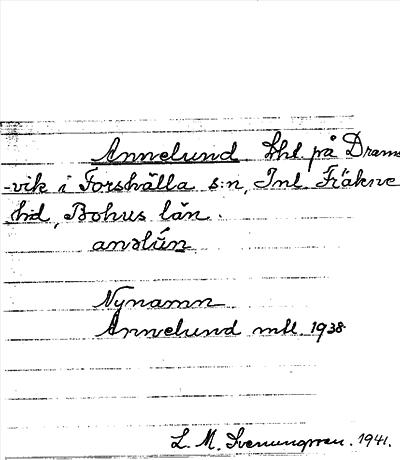 Annelund lht. på Drams
-vik i Forshälla s:n, Inl. Fräkne
hd, Bohus län.
anəlún
Nynamn
Annelund mtl. 1938.
L. M. Svenungsson. 1941.